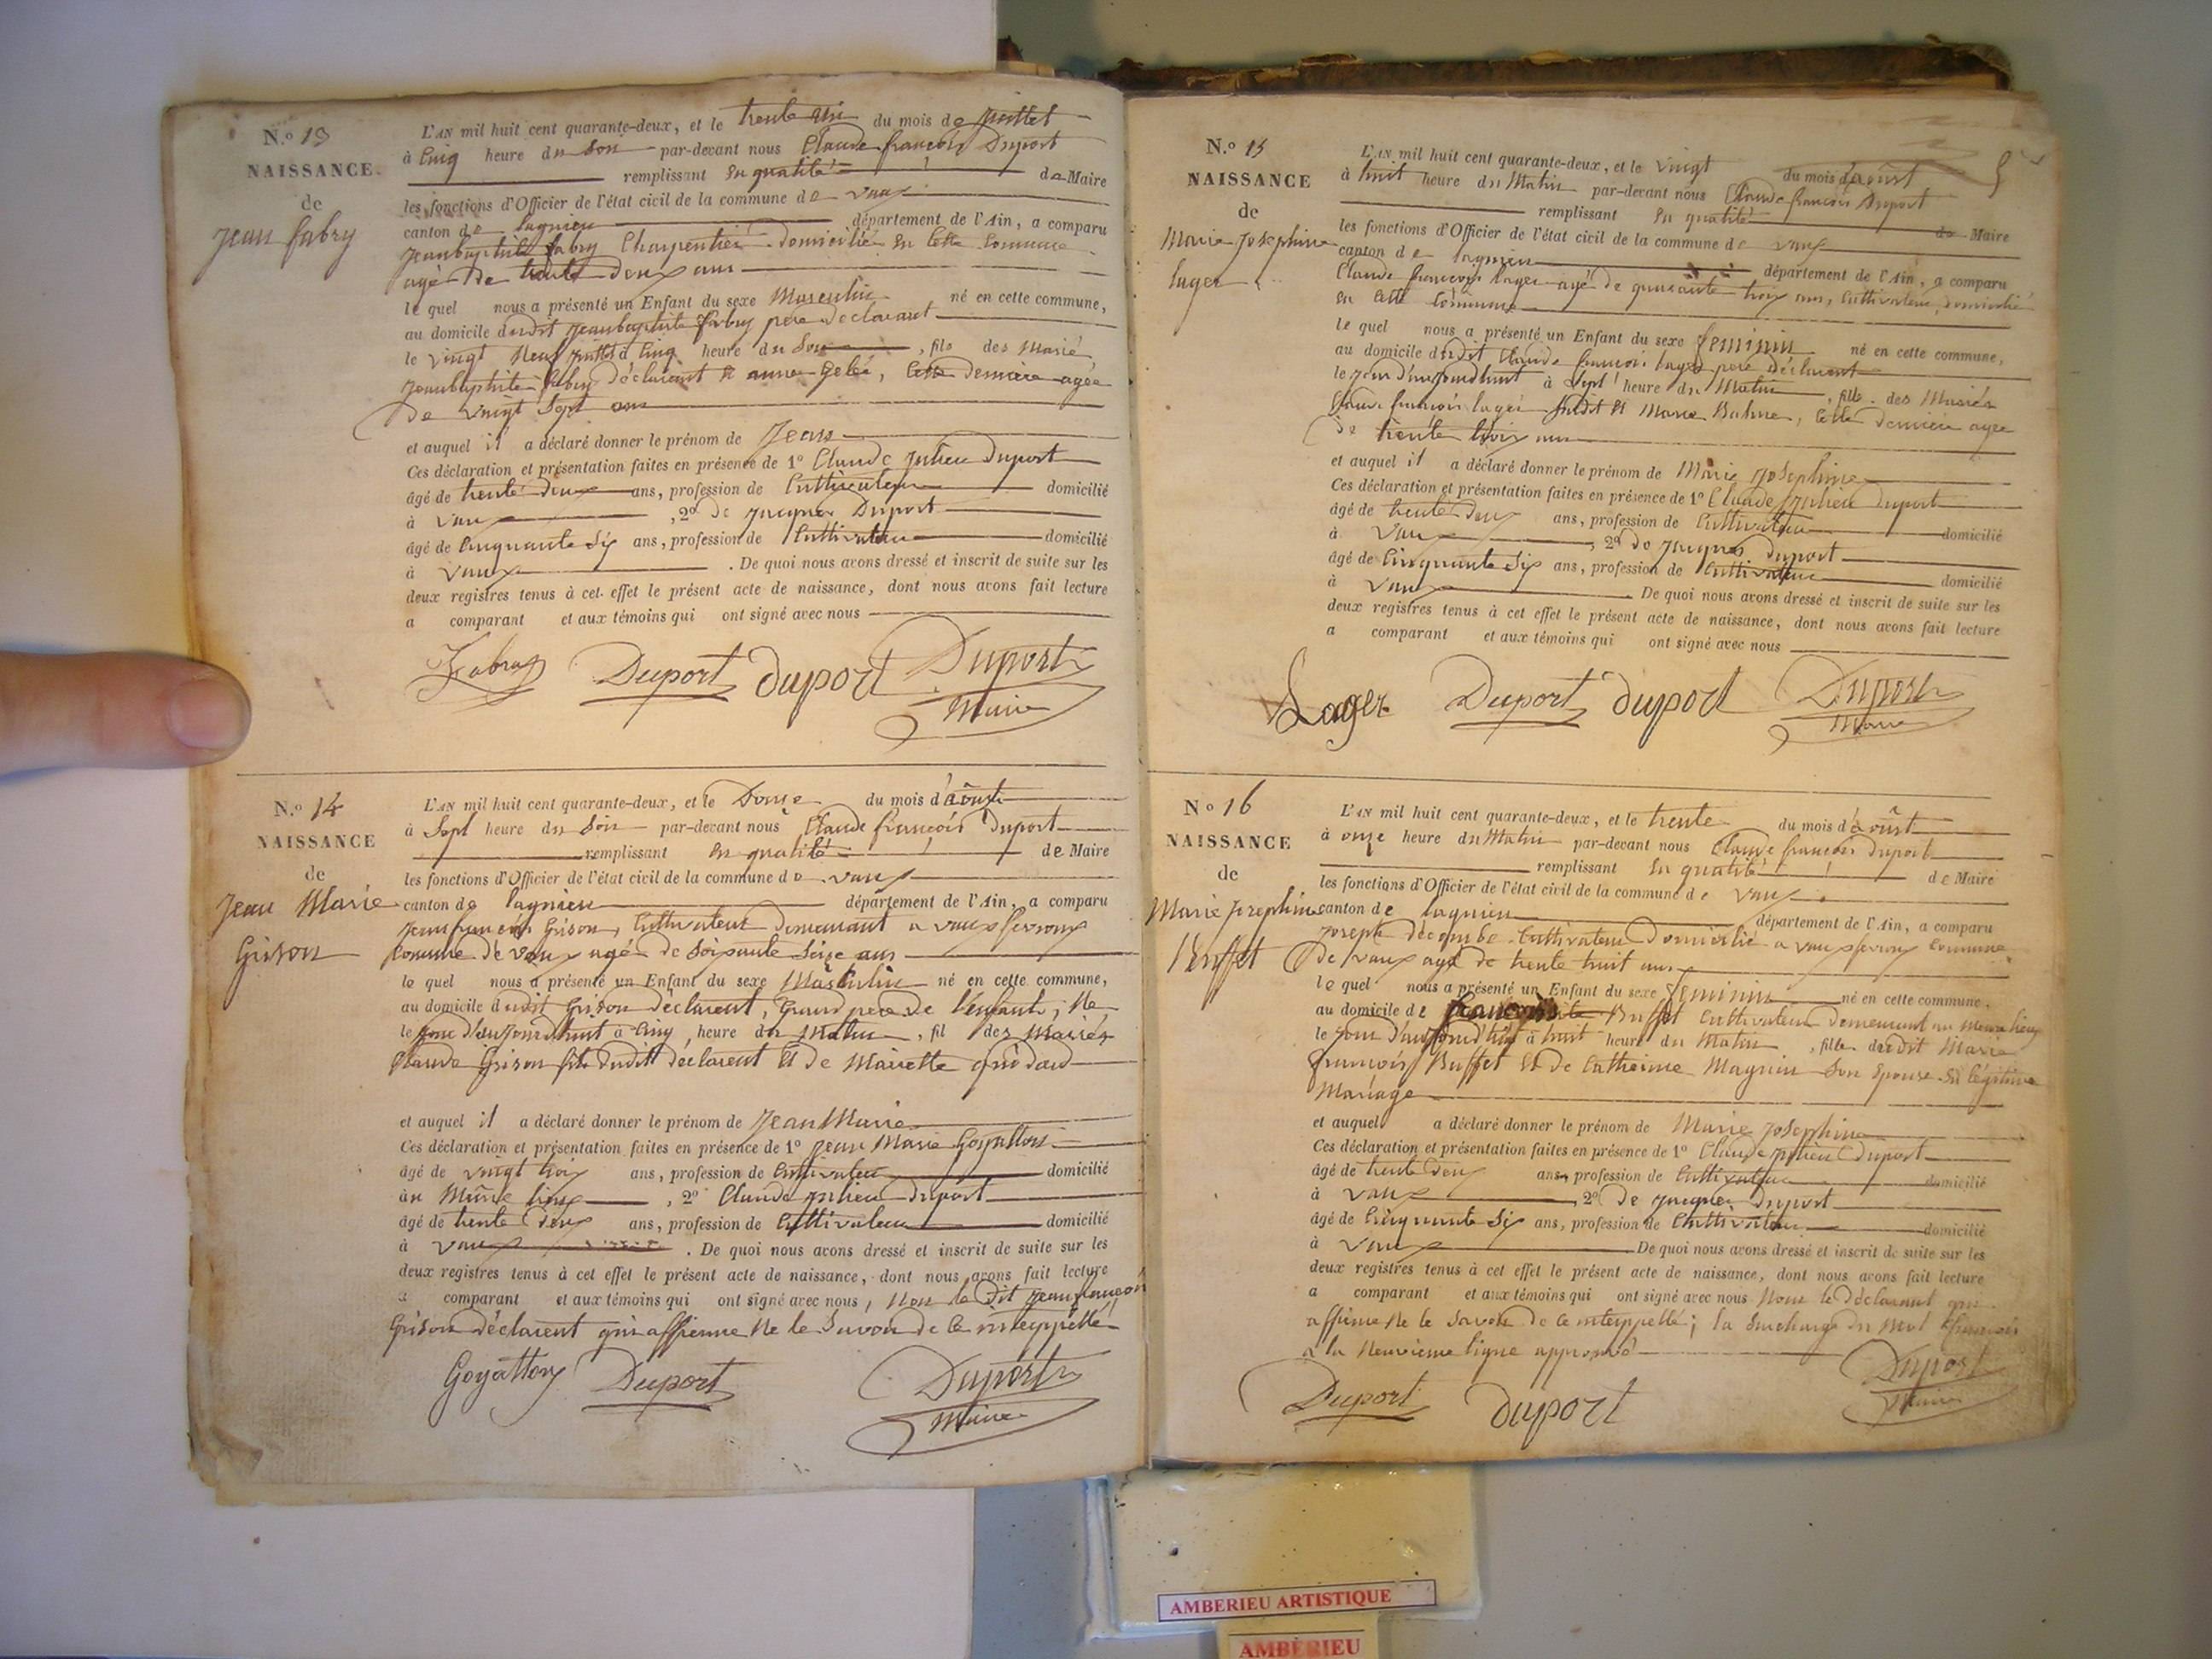 N.º 13
NAISSANCE
de
Jean fabry
L'AN mil huit cent quarante-deux, et le trente un du mois de juillet
à Cinq heure du Soir par-devant nous Claude françois Duport
remplissant en qualité de Maire
les fonctions d'Officier de l'état civil de la commune de vaux
canton de lagnieu département de l'Ain, a comparu
jeanbaptiste fabry Charpentier domicilié en cette commune
agé de trente deux ans
le quel nous a présenté un Enfant du sexe Masculin né en cette commune,
au domicile dudit jeanbaptiste fabry père déclarant
le vingt neuf juillet à cinq heure du Soir, fils des Marié
jeanbaptiste fabry déclarant et anne Gelée, cette dernière agée
de vingt sept ans
et auquel il a déclaré donner le prénom de Jean
Ces déclaration et présentation faites en présence de 1º Claude julien Duport
âgé de trente deux ans, profession de Cultivateur domicilié
à vaux, 2º de jacques Duport
âgé de Cinquante Six ans, profession de Cultivateur domicilié
à vaux. De quoi nous avons dressé et inscrit de suite sur les
deux registres tenus à cet effet le présent acte de naissance, dont nous avons fait lecture
a comparant et aux témoins qui ont signé avec nous
Fabry Duport duport Duport
Maire
N.º 14
NAISSANCE
de
Jean Marie
Grison
L'AN mil huit cent quarante-deux, et le Douze du mois d'août
à Sept heure du Soir par-devant nous Claude françois Duport
remplissant en qualité de Maire
les fonctions d'Officier de l'état civil de la commune de vaux
canton de lagnieu département de l'Ain, a comparu
jeanfrançois Grison, Cultivateur demeurant a vauxfevroux
commune de vaux agé de Soixante Seize ans
le quel nous a présenté un Enfant du sexe Masculin né en cette commune,
au domicile dudit Grison déclarent, Grand père de l'enfant, Né
le jour d'aujourd'huit à Cinq heure du Matin, fil des Mariés
Claude Grison fils dudit déclarent et de Mariette
et auquel il a déclaré donner le prénom de Jean Marie
Ces déclaration et présentation faites en présence de 1º jean Marie Goyatton
âgé de vingt trois ans, profession de Cultivateur domicilié
au Même lieux, 2º Claude julien duport
âgé de trente Deux ans, profession de Cultivateur domicilié
à vaux. De quoi nous avons dressé et inscrit de suite sur les
deux registres tenus à cet effet le présent acte de naissance, dont nous avons fait lecture
a comparant et aux témoins qui ont signé avec nous, Non le Dit jeanfrançois
Grison déclarent qui affirme Ne le Savoir de ce interppellé
Goyatton Duport Duport
Maire
N.º 15
NAISSANCE
de
Marie Josephine
lager
L'AN mil huit cent quarante-deux, et le vingt du mois d'août
à huit heure du Matin par-devant nous Claude françois Duport
remplissant en qualité de Maire
les fonctions d'Officier de l'état civil de la commune de vaux
canton de lagnieu département de l'Ain, a comparu
Claude françois lager agé de quarante trois ans, Cultivateur, domicilié
en cette commune
le quel nous a présenté un Enfant du sexe feminin né en cette commune,
au domicile dudit Claude françois lager père déclarent
le jour d'aujourd'huit à Sept heure du Matin, fille des Mariés
Claude françois lager Sudit et Marie, cette dernière agée
de trente trois ans
et auquel il a déclaré donner le prénom de Marie Josephine
Ces déclaration et présentation faites en présence de 1º Claude Julien duport
âgé de trente Deux ans, profession de Cultivateur domicilié
à vaux, 2º de jacques duport
âgé de Cinquante Six ans, profession de Cultivateur domicilié
à vaux. De quoi nous avons dressé et inscrit de suite sur les
deux registres tenus à cet effet le présent acte de naissance, dont nous avons fait lecture
a comparant et aux témoins qui ont signé avec nous
Lager Duport duport Duport
Maire
Nº 16
NAISSANCE
de
Marie Josephine
Buffet
L'AN mil huit cent quarante-deux, et le trente du mois d'août
à onze heure du Matin par-devant nous Claude françois duport
remplissant en qualité de Maire
les fonctions d'Officier de l'état civil de la commune de vaux
canton de lagnieu département de l'Ain, a comparu
joseph décombe Cultivateur Domicilié a vauxfevroux commune
de vaux agé de trente huit ans
le quel nous a présenté un Enfant du sexe feminin né en cette commune,
au domicile de françois Buffet Cultivateur demeurant au meme lieux
le jour d'aujourd'huy à huit heure du Matin, fille dudit Marie
françois Buffet et de Catherine Magnin Son Epouse en légitime
Mariage
et auquel a déclaré donner le prénom de Marie Josephine
Ces déclaration et présentation faites en présence de 1º Claude julien Duport
âgé de trente Deux ans, profession de Cultivateur domicilié
à vaux, 2º de jacques duport
âgé de Cinquante Six ans, profession de Cultivateur domicilié
à vaux. De quoi nous avons dressé et inscrit de suite sur les
deux registres tenus à cet effet le présent acte de naissance, dont nous avons fait lecture
a comparant et aux témoins qui ont signé avec nous Non le Déclarant qui
affirme Ne le Savoir de ce interppellé; la Surcharge du Mot françois
a la Neuvieme ligne approuvé
Duport duport Duport
Maire
AMBERIEU ARTISTIQUE
AMBÉRIEU